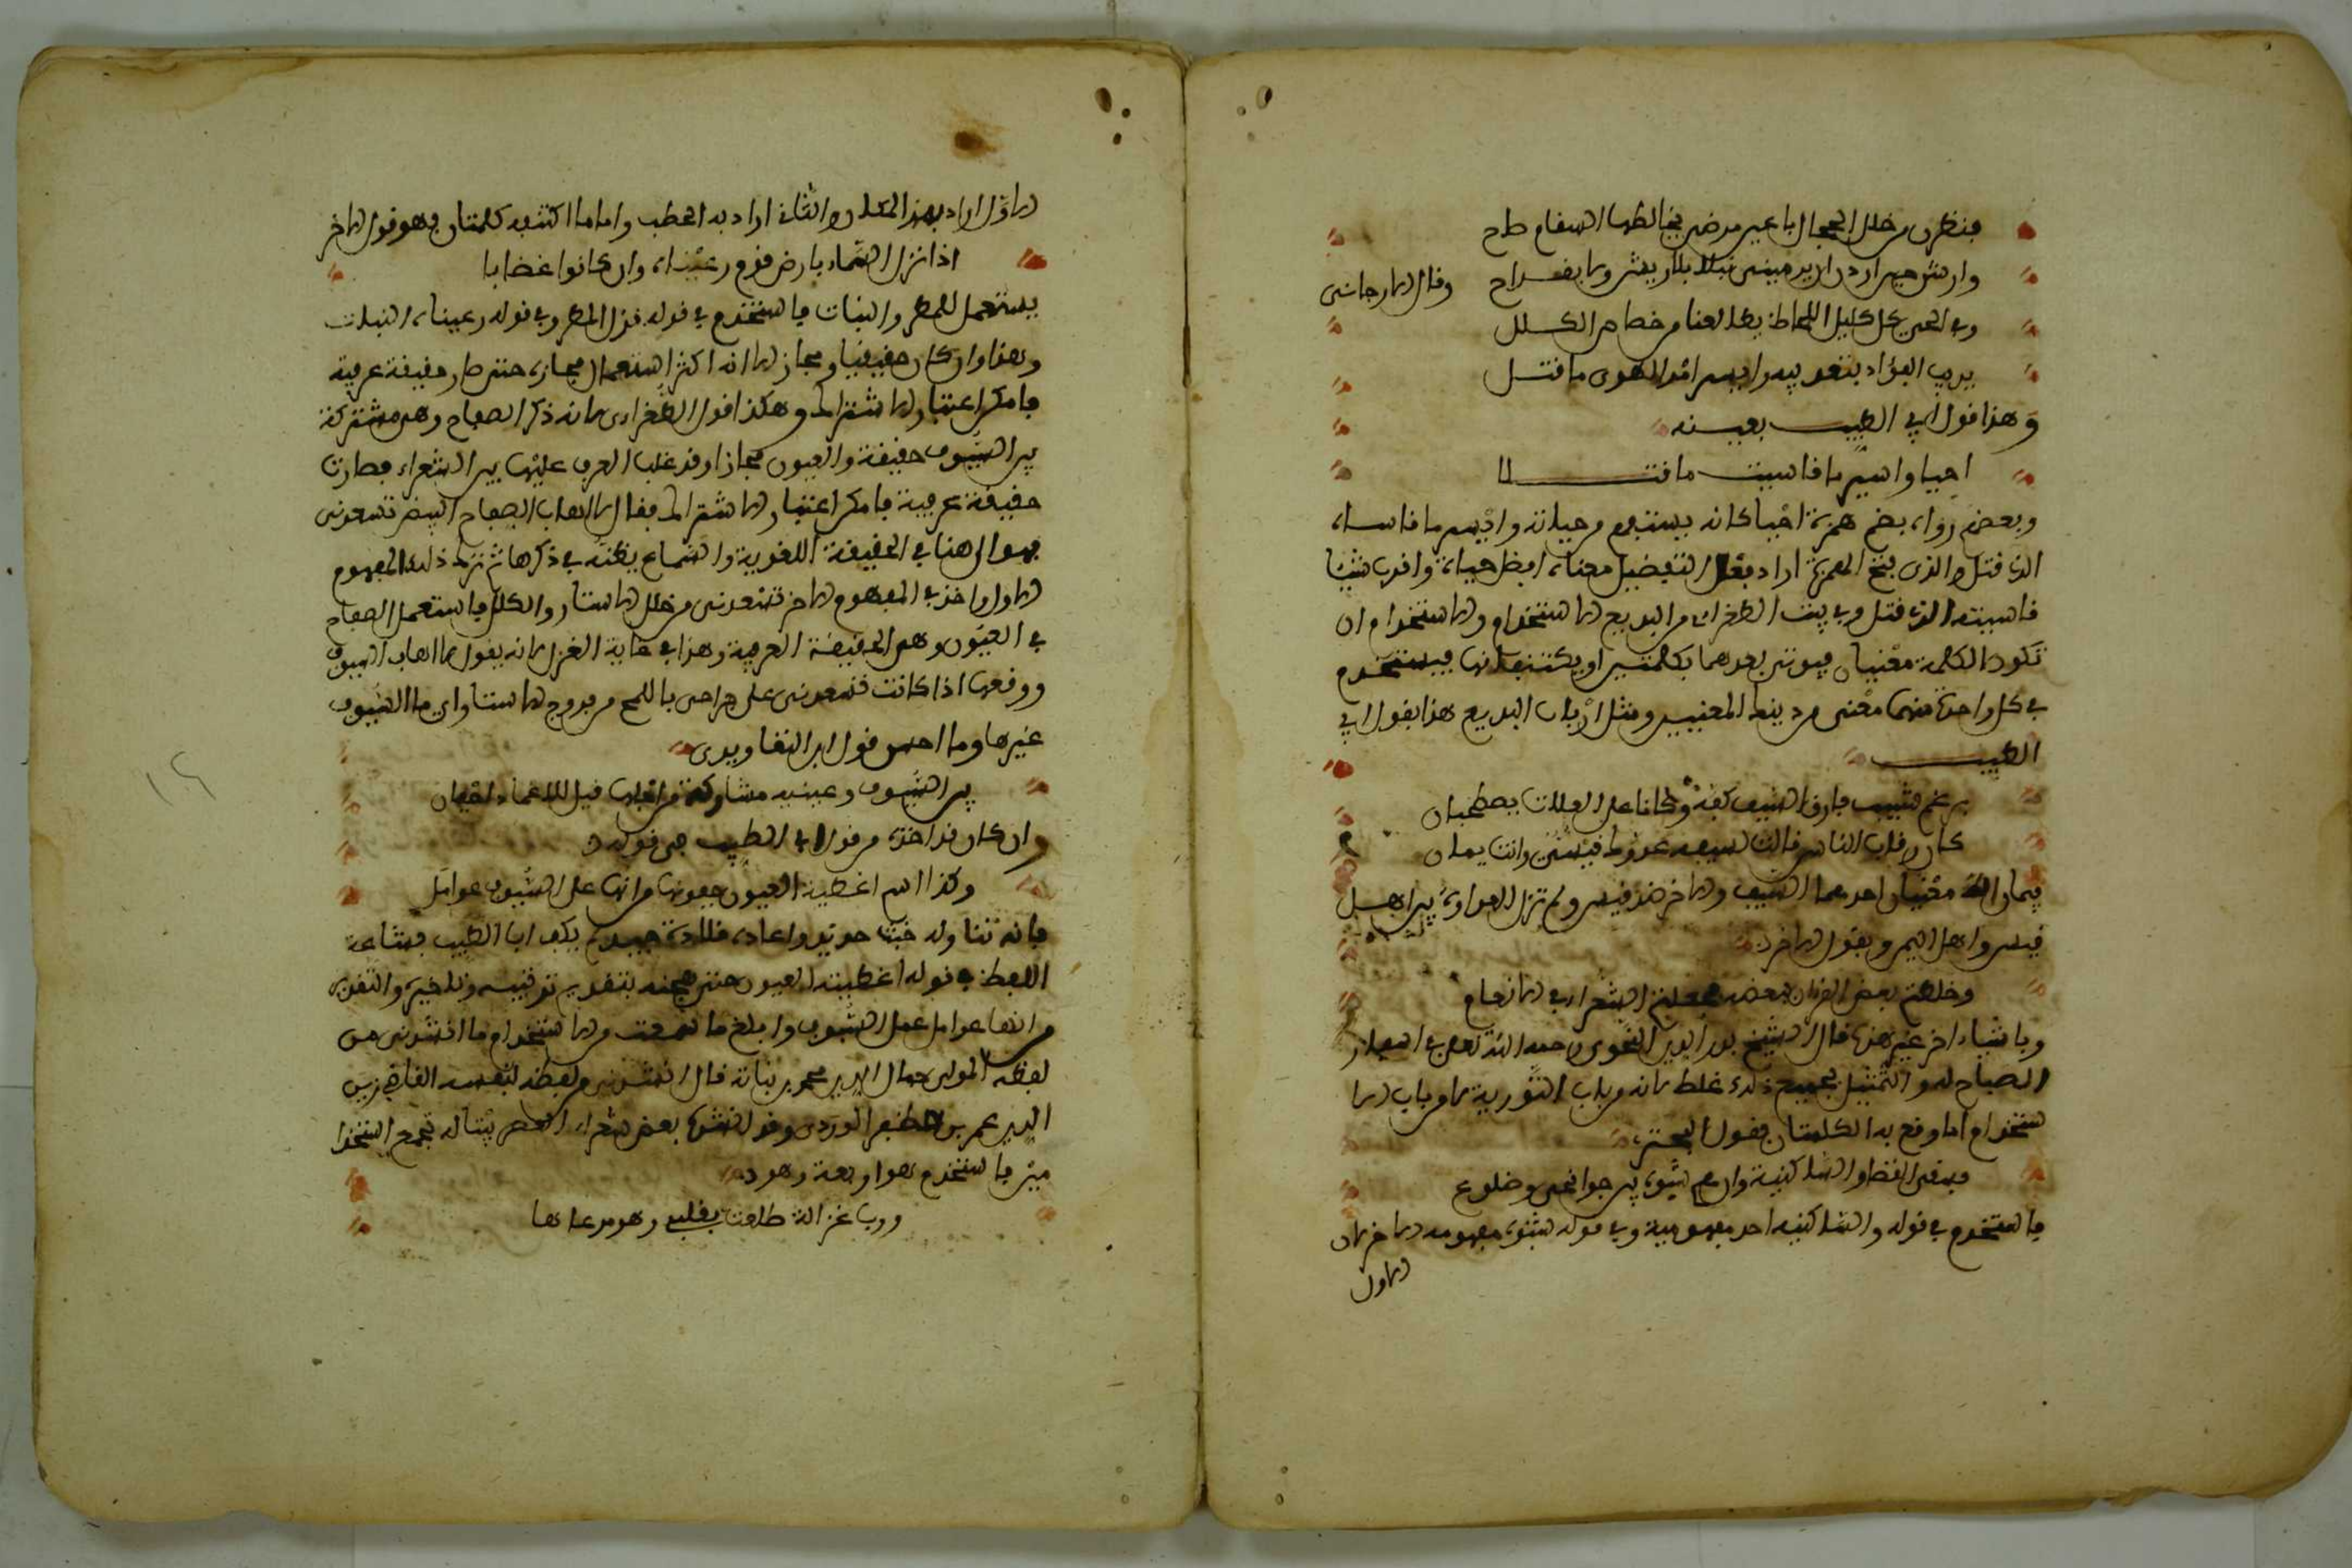 فنظرن من خلل الحجال باعين مرضى يخالطها السقام صحاح
وارتشن حين اردن ان يرميننى نبلا بلا ريش ولا بقداح وقال الارجانى
وفى الحى كل كليل اللحاظ يطالعنا من خصاص الكلل
يريب الفؤاد
وهذا قول ابى الطيب بعينه
احيا وايسر ما قاسيت ما قتلا
وبعضهم رواه بضم همزة احيا كانه يستفهم عن حياته وايسر ما قاساه
الذى قتل والذى فتح الهمزة اراد افعل التفضيل معناه افضل حياة واقرب شيئا
قاسيته الذى قتل وفى بيت الطغراى من البديع الاستخدام والاستخدام ان
تكون الكلمة معنيان فيوتى بعدهما بكلمتين او يكتنفانها فيستخدم
فى كل واحدة منهما معنى من دينك المعنيين ومثل ارباب البديع هذا بقول ابى
الطيب
برغم شبيب فارق السيف كفه وكانا على العلات يصطحبان
كان رقاب الناس قالت لسيفه عدوك قيسى وانت يمان
يمان له معنيان احدهما السيف والاخر ضد قيس ولم تزل العداوة بين اهل
قيس واهل اليمن وبقول الاخر
وخلطتم بعض القران ببعضه فجعلتم الشعراء فى الانعام
وباشياء اخر غير هذا قال الشيخ بدر الدين النحوى رحمه الله تعلى فى اسفار
الصباح له والتمثيل بجميع ذلك غلط لانه من باب التورية لا من باب الا
ستخدام اما وقع به الكلمتان فقول البحترى
فسقى الغضا والساكنيه وان هم شبوه بين جوانحى وضلوع
فاستخدم فى قوله والساكنيه احد مفهوميه وفى قوله شبوه مفهومه الاخر لان
الاول
الاول اراد بهذا المكان والثانى اراد به الحطب واما ما اكتنفه كلمتان فهو قول الاخر
اذا نزل السماء بارض قوم رعيناه وان كانوا غضابا
يستعمل للمطر والنبات فاستخدم فى قوله نزل المطر وفى قوله رعيناه النبات
وهذا وان كان حقيقيا ومجازا الا انه اكثر استعمال مجازه حتى صار حقيقة عرفية
فامكن اعتبار الاشتراك وهكذا قول الطغراى لانه ذكر الصفاح وهى مشتركة
بين السيوف حقيقة والعيون مجازا وقد غلب العرف عليها بين الشعراء فصارت
حقيقة عرفية فامكن اعتبار الاشتراك فقال لا اهاب الصفاح البيض تسعدنى
فهو الى هنا فى الحقيقة اللغوية والسماع يظنه فى ذكرها ثم ترك ذلك المفهوم
الاول واخذ فى المفهوم الاخر تسعدنى من خلل الاستار والكلل فاستعمل الصفاح
فى العيون وهى الحقيقة العرفية وهذا فى غاية الغزل لانه يقول لا اهاب السيوف
ووقعها اذا كانت تسعدنى على جراحى باللمح من فروج الاستار واى ما السيوف
غيرها وما احسن قول ابن التعاويذى
بين السيوف وعينيه مشاركة من اجلها قيل للاغماد اجفان
وان كان قد اخذه من قول ابى الطيب فى قوله
وكذا اسم اغطية العيون جفونها من انها عمل السيوف عوامل
فانه تناوله خبث حديد واعاده قلادة جيد ولم يكف ابا الطيب بشاعة
اللفظ فى قوله اغطية العيون حتى هجنه بتقديم ترتيبه وتاخيره والتقدير
من انها عوامل عمل السيوف وابلغ ما سمعت فى الاستخدام ما انشدنى من
لفظه المولى جمال الدين محمد بن نباتة قال انشدنى من لفظه لنفسه القاضى زين
الدين عمر بن المظفر الوردى وقد انشد بعض شعراء العصر بيتا له فجمع استخدا
مين فاستخدم هو اربعة وهو
ورب غزالة طلعت بقلبى وهو مرعاها